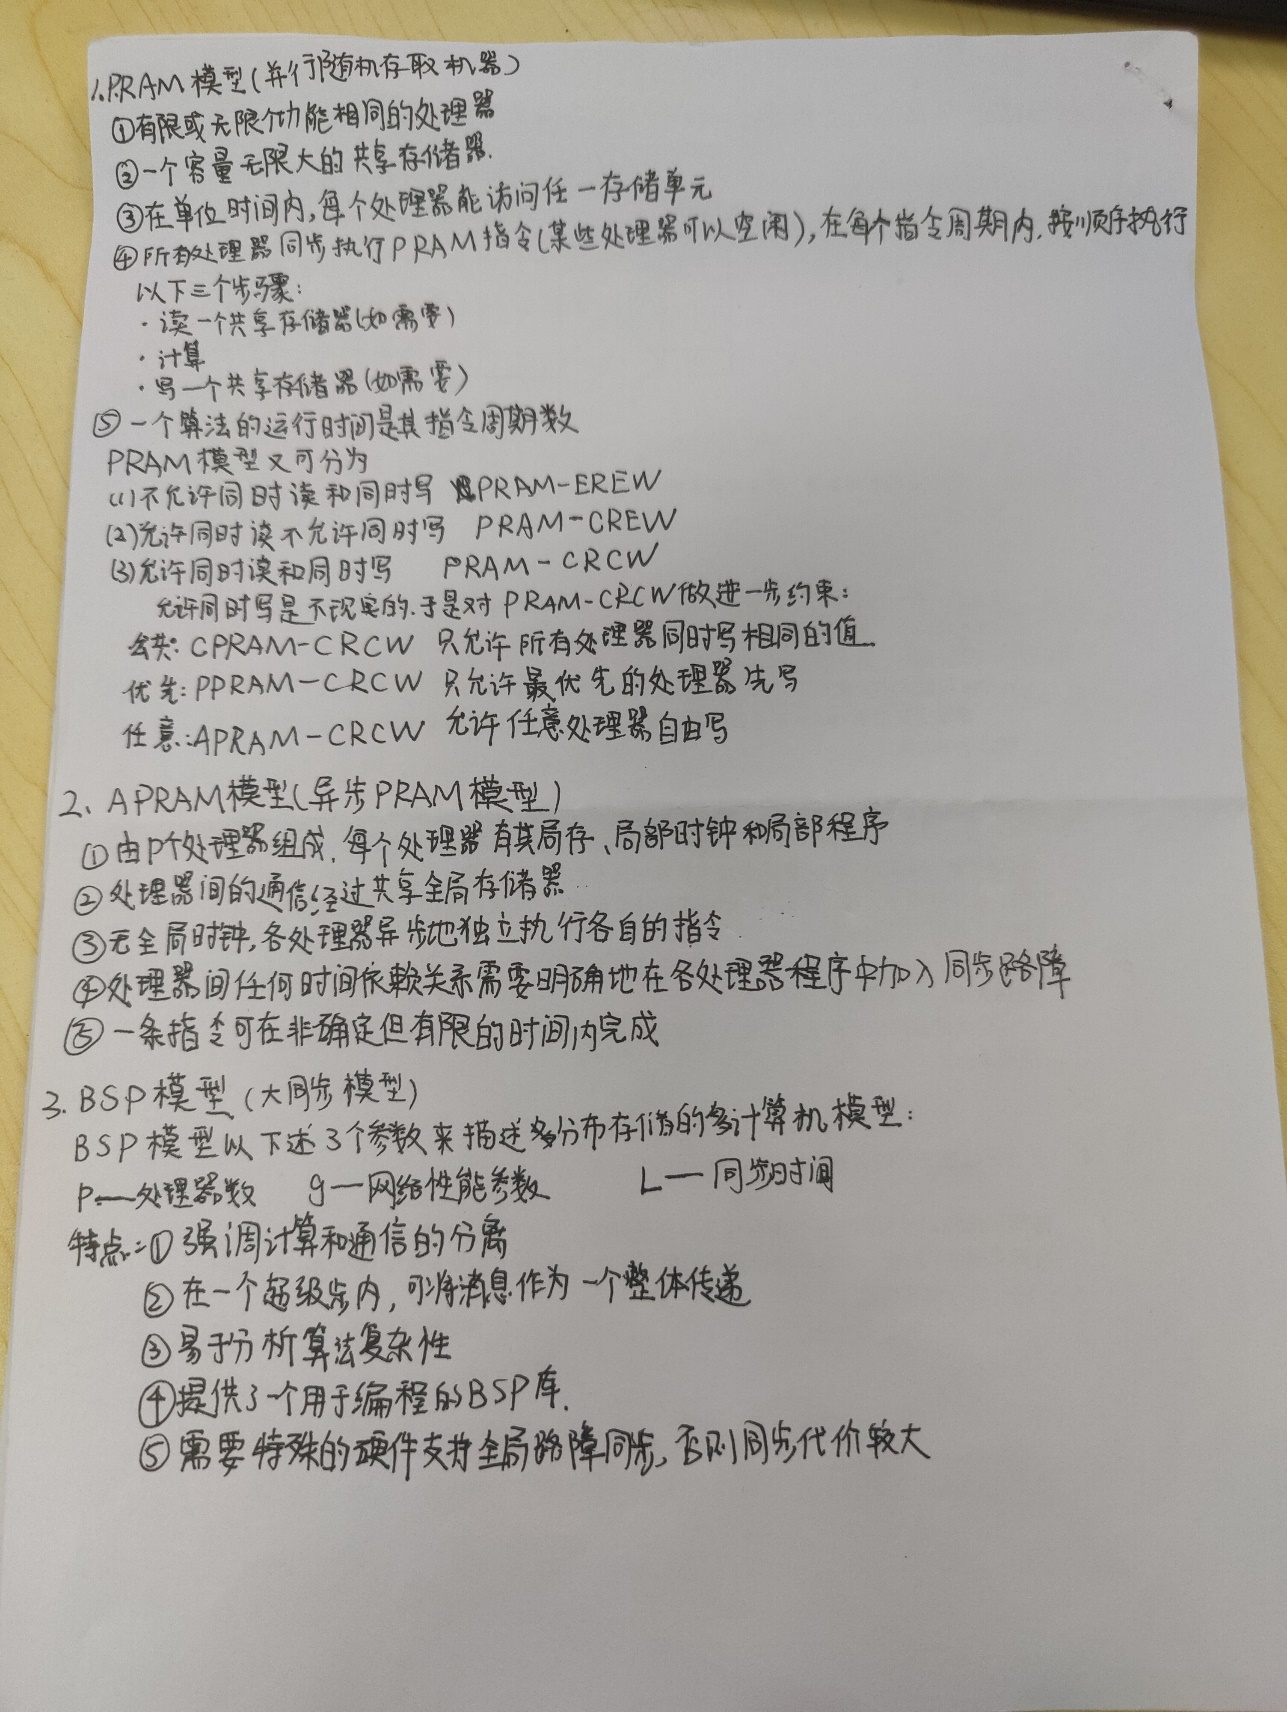 1.PRAM模型(并行随机存取机器)
①有限或无限个功能相同的处理器
②一个容量无限大的共享存储器.
③在单位时间内,每个处理器能访问任一存储单元
④所有处理器同步执行PRAM指令(某些处理器可以空闲),在每个指令周期内,按顺序执行
以下三个步骤:
·读一个共享存储器(如需要)
·计算
·写一个共享存储器(如需要)
⑤一个算法的运行时间是其指令周期数
PRAM模型又可分为
(1)不允许同时读和同时写 PRAM-EREW
(2)允许同时读不允许同时写 PRAM-CREW
(3)允许同时读和同时写 PRAM-CRCW
允许同时写是不现实的.于是对PRAM-CRCW做进一步约束:
公共:CPRAM-CRCW 只允许所有处理器同时写相同的值
优先:PPRAM-CRCW 只允许最优先的处理器先写
任意:APRAM-CRCW 允许任意处理器自由写
2、APRAM模型(异步PRAM模型)
①由P个处理器组成,每个处理器有其局存、局部时钟和局部程序
②处理器间的通信经过共享全局存储器
③无全局时钟,各处理器异步地独立执行各自的指令
④处理器间任何时间依赖关系需要明确地在各处理器程序中加入同步路障
⑤一条指令可在非确定但有限的时间内完成
3.BSP模型(大同步模型)
BSP模型以下述3个参数来描述分布存储的多计算机模型:
P—处理器数 g—网络性能参数 L—同步时间
特点:①强调计算和通信的分离
②在一个超级步内,可将消息作为一个整体传递
③易于分析算法复杂性
④提供了一个用于编程的BSP库.
⑤需要特殊的硬件支持全局路障同步,否则同步代价较大